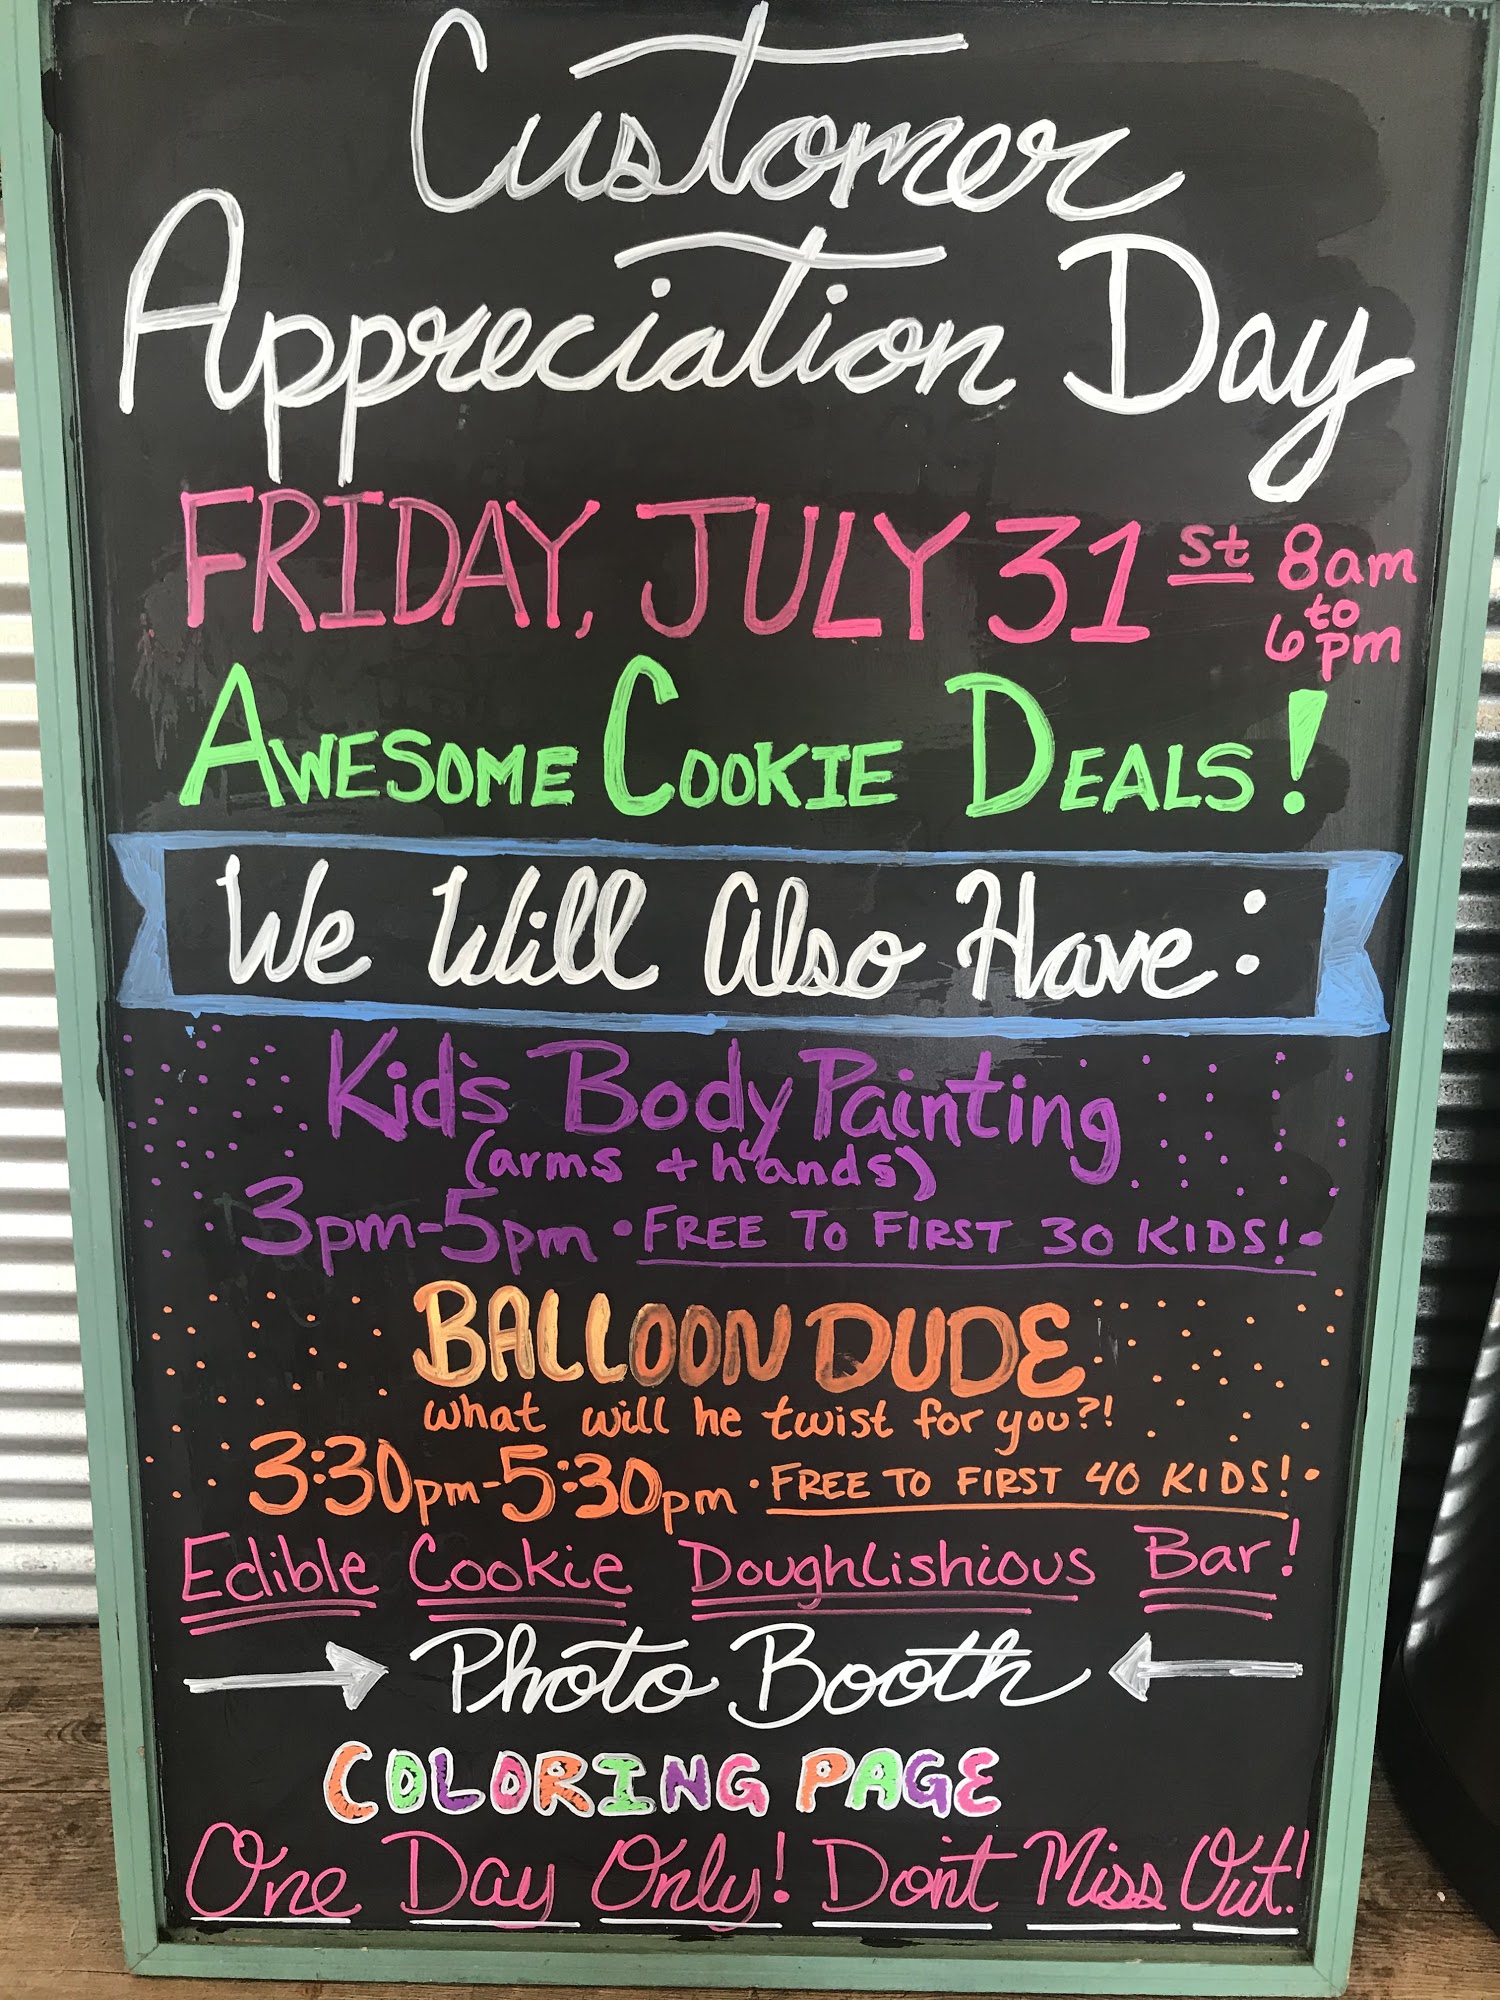 Customer
Appreciation Day
FRIDAY, JULY 31st 8am
to
6pm
AWESOME COOKIE DEALS!
We Will Also Have:
Kid's Body Painting
(arms + hands)
3pm-5pm • FREE TO FIRST 30 KIDS! •
BALLOON DUDE
what will he twist for you?!
3:30pm-5:30pm • FREE TO FIRST 40 KIDS! •
Edible Cookie Doughlishious Bar!
Photo Booth
COLORING PAGE
One Day Only! Don't Miss Out!